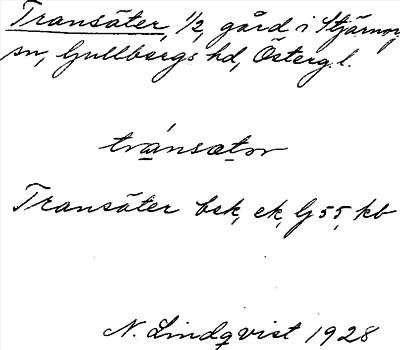 Transäter, 1/2, gård i Stjärnorp
sn, Gullbergs hd, Österg. l.
tránsætər
Transäter bek, ek, G 55, kb
N. Lindqvist 1928